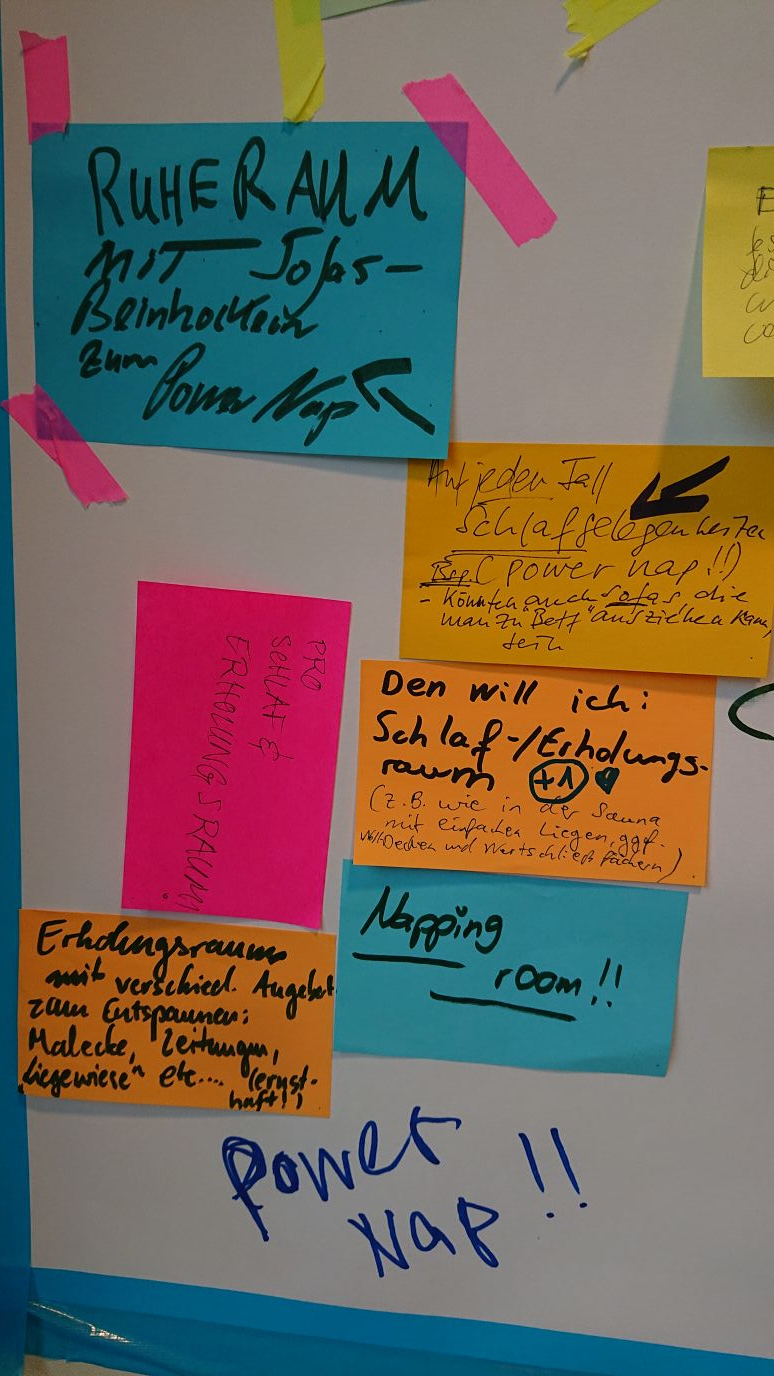 RUHERAUM
MIT Sofas-
Beinhockern
zum
Power Nap
Auf jeden Fall
Schlafgelegenheiten
Bsp. (power nap!!)
- Könnten auch sofas die
man zu "Bett" ausziehen kann,
sein
PRO
SCHLAF &
ERHOLUNGSRAUM!
Den will ich:
Schlaf-/Erholungs-
raum +1
(z.B. wie in der Sauna
mit einfachen Liegen, ggf.
Decken und Wertschließfächern)
Napping
room!!
Erholungsraum
mit verschied. Angebot
zum Entspannen:
Malecke, Zeitungen,
"Liegewiese" etc.... (ernst-
haft!)
Power
Nap!!